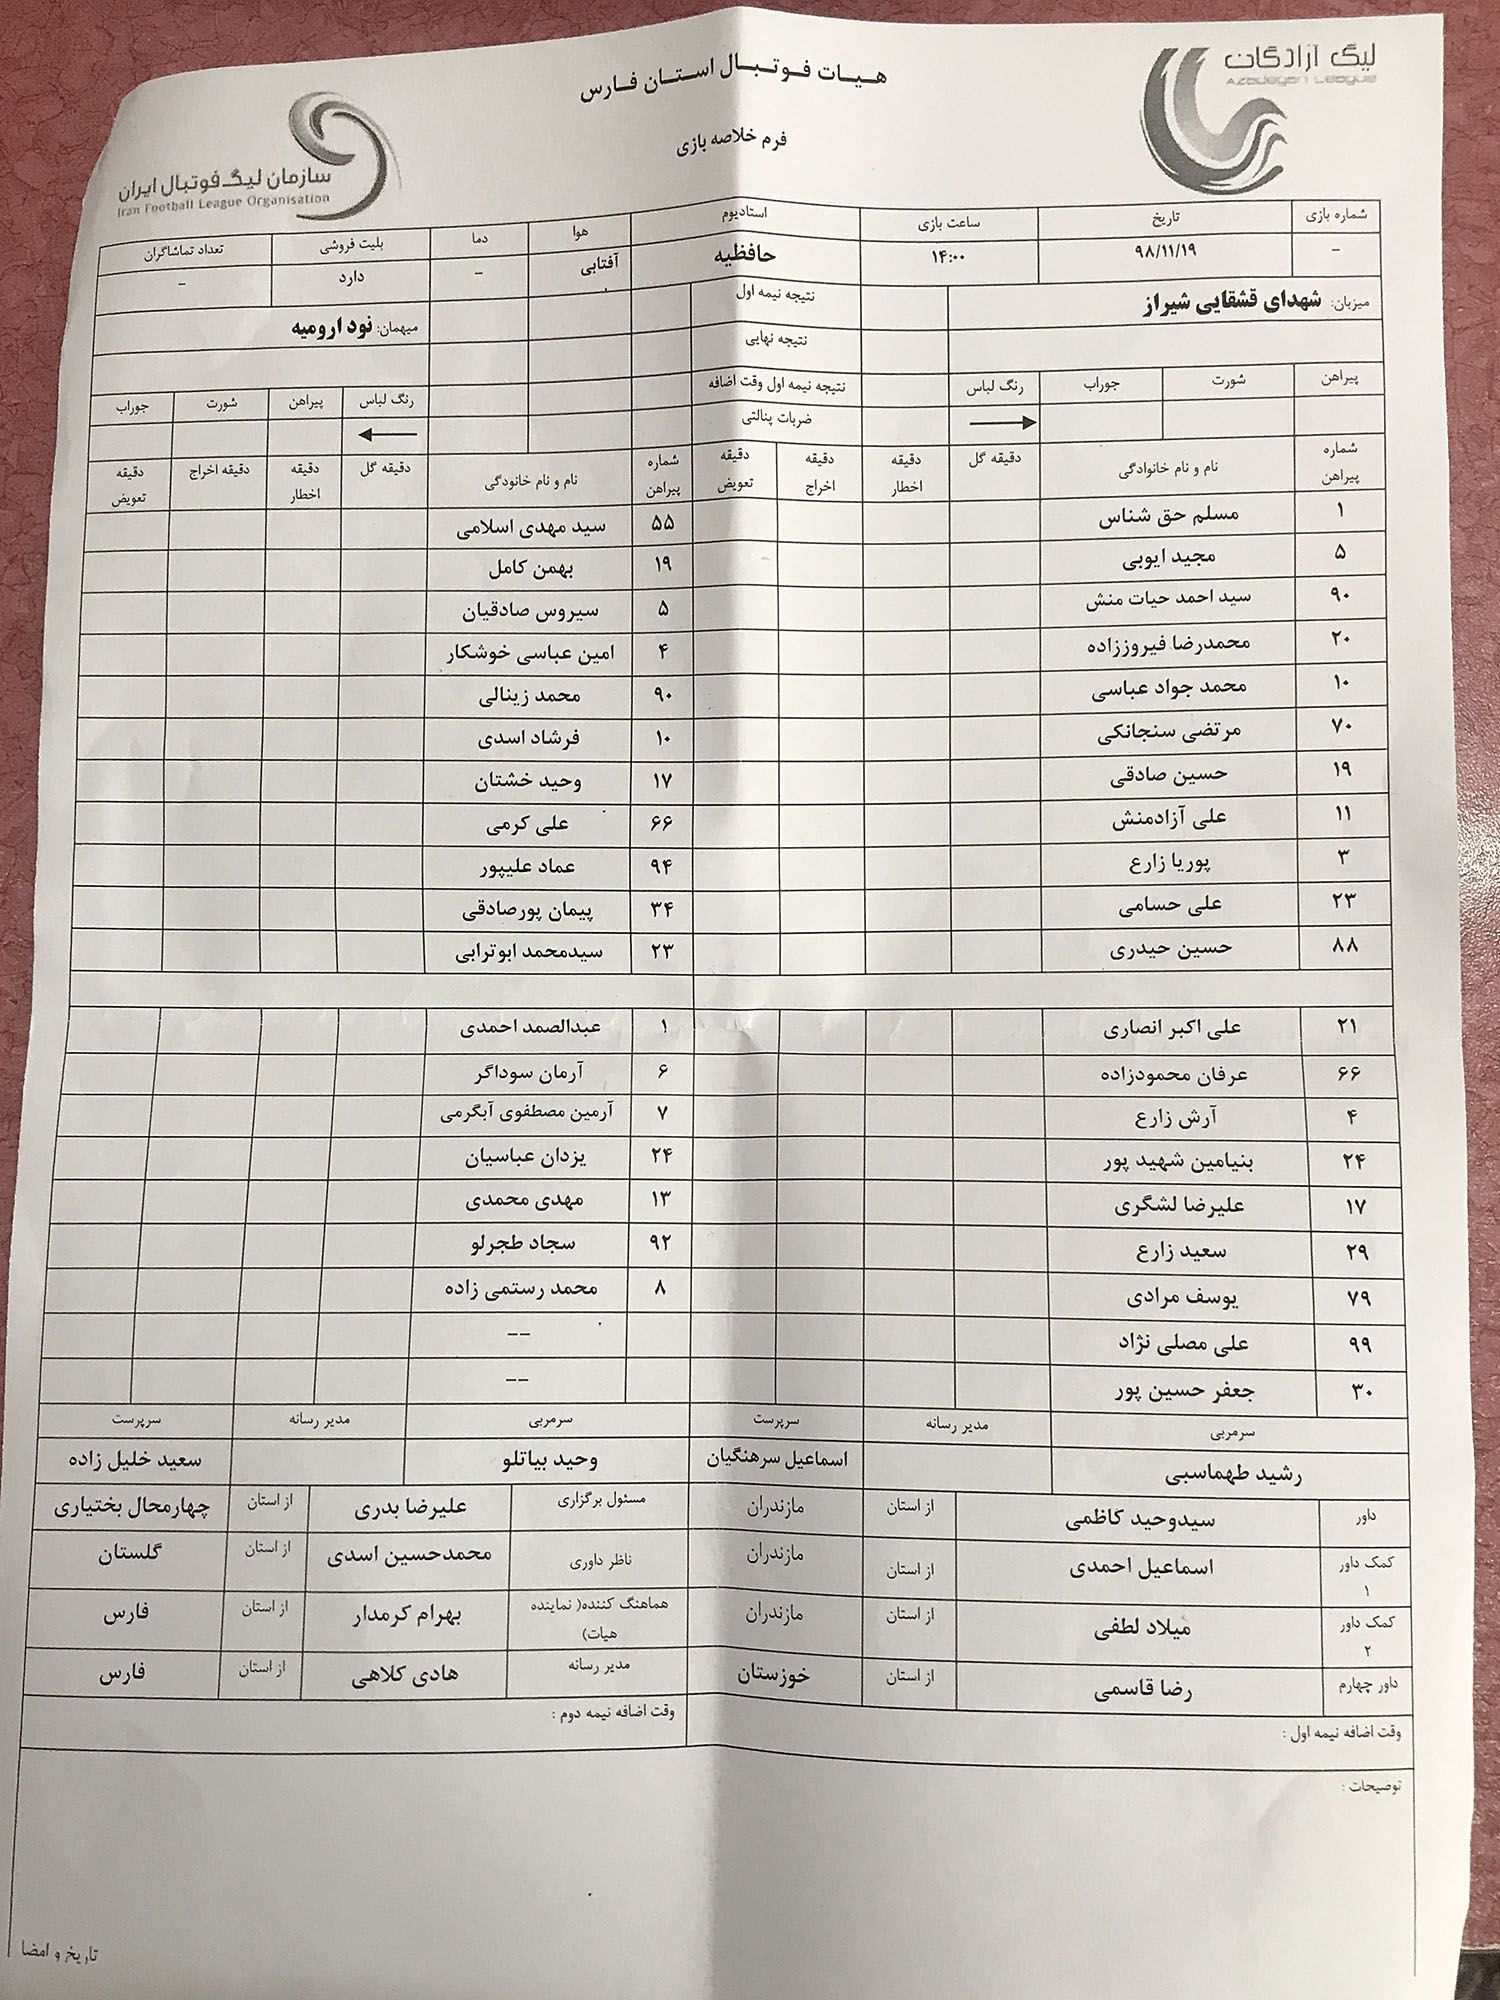 لیگ آزادگان
Azadegan League
هیات فوتبال استان فارس
فرم خلاصه بازی
سازمان لیگ فوتبال ایران
Iran Football League Organisation
شماره بازی تاریخ ساعت بازی استادیوم هوا دما بلیت فروشی تعداد تماشاگران
- ۹۸/۱۱/۱۹ ۱۴:۰۰ حافظیه آفتابی - دارد -
میزبان: شهدای قشقایی شیراز نتیجه نیمه اول میهمان: نود ارومیه
نتیجه نهایی
پیراهن شورت جوراب رنگ لباس نتیجه نیمه اول وقت اضافه رنگ لباس پیراهن شورت جوراب
ضربات پنالتی
شماره پیراهن نام و نام خانوادگی دقیقه گل دقیقه اخطار دقیقه اخراج دقیقه تعویض شماره پیراهن نام و نام خانودگی دقیقه گل دقیقه اخطار دقیقه اخراج دقیقه تعویض
۱ مسلم حق شناس ۵۵ سید مهدی اسلامی
۵ مجید ایوبی ۱۹ بهمن کامل
۹۰ سید احمد حیات منش ۵ سیروس صادقیان
۲۰ محمدرضا فیروززاده ۴ امین عباسی خوشکار
۱۰ محمد جواد عباسی ۹۰ محمد زینالی
۷۰ مرتضی سنجانکی ۱۰ فرشاد اسدی
۱۹ حسین صادقی ۱۷ وحید خشتان
۱۱ علی آزادمنش ۶۶ علی کرمی
۳ پوریا زارع ۹۴ عماد علیپور
۲۳ علی حسامی ۳۴ پیمان پورصادقی
۸۸ حسین حیدری ۲۳ سیدمحمد ابوترابی
۲۱ علی اکبر انصاری ۱ عبدالصمد احمدی
۶۶ عرفان محمودزاده ۶ آرمان سوداگر
۴ آرش زارع ۷ آرمین مصطفوی آبگرمی
۲۴ بنیامین شهید پور ۲۴ یزدان عباسیان
۱۷ علیرضا لشگری ۱۳ مهدی محمدی
۲۹ سعید زارع ۹۲ سجاد طجرلو
۷۹ یوسف مرادی ۸ محمد رستمی زاده
۹۹ علی مصلی نژاد --
۳۰ جعفر حسین پور --
سرمربی مدیر رسانه سرپرست سرمربی مدیر رسانه سرپرست
رشید طهماسبی اسماعیل سرهنگیان وحید بیاتلو سعید خلیل زاده
داور سیدوحید کاظمی از استان مازندران مسئول برگزاری علیرضا بدری از استان چهارمحال بختیاری
کمک داور ۱ اسماعیل احمدی از استان مازندران ناظر داوری محمدحسین اسدی از استان گلستان
کمک داور ۲ میلاد لطفی از استان مازندران هماهنگ کننده( نماینده هیات) بهرام کرمدار از استان فارس
داور چهارم رضا قاسمی از استان خوزستان مدیر رسانه هادی کلاهی از استان فارس
وقت اضافه نیمه اول : وقت اضافه نیمه دوم :
توصیحات :
تاریخ و امضا